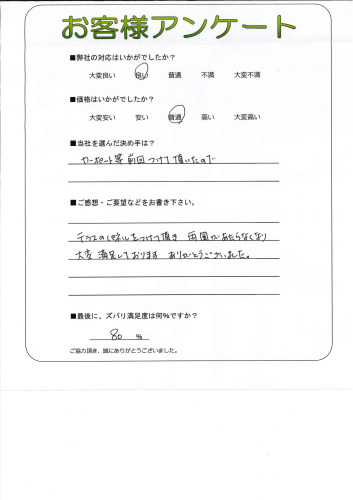 お客様アンケート
■弊社の対応はいかがでしたか？
大変良い 良い 普通 不満 大変不満
■価格はいかがでしたか？
大変安い 安い 普通 高い 大変高い
■当社を選んだ決め手は？
カーポート等 前回つけて頂いたので
■ご感想・ご要望などをお書き下さい。
テラスのパネルをつけて頂き 雨風があたらなくなり
大変 満足しております ありがとうございました。
■最後に、ズバリ満足度は何％ですか？
80 %
ご協力頂き、誠にありがとうございました。